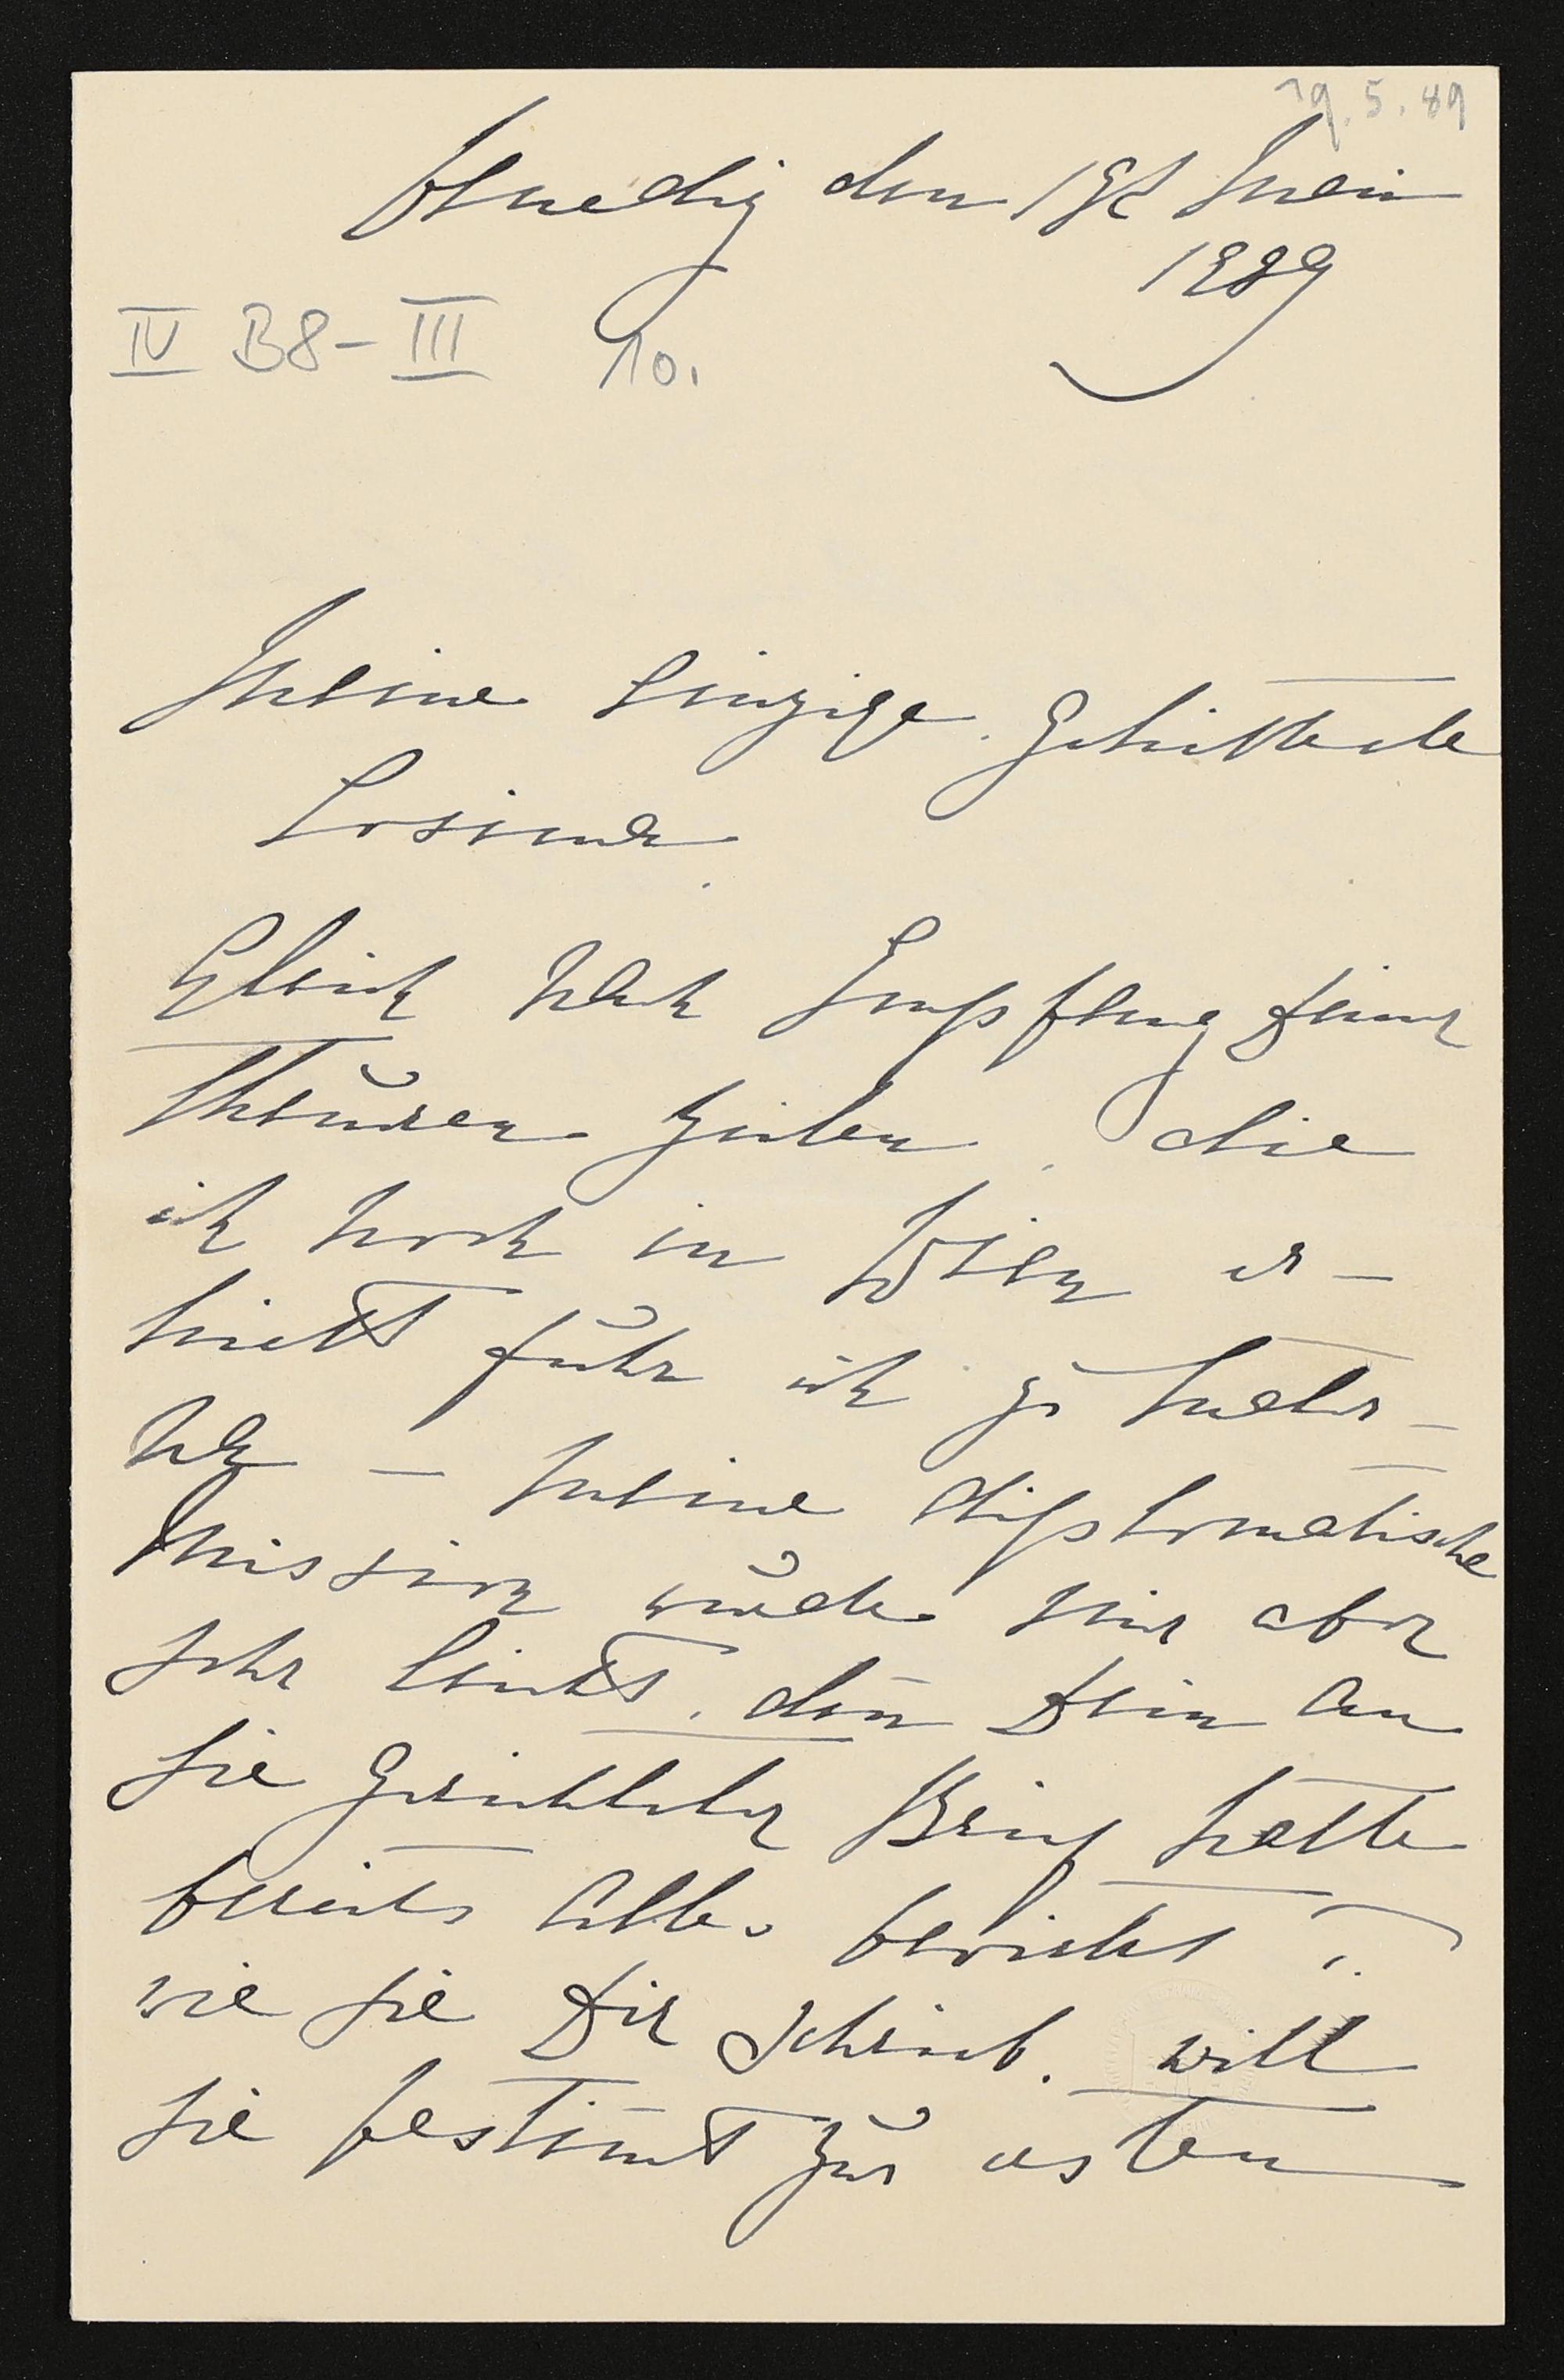 19.5.89
Venedig den 19t Mai
1889
IV B8-III 10.
Meine Einzige, Geliebteste
Cosima
Gleich nach Empfang Deiner
Theuren Zeilen, die
ich noch in Wien er-
hielt fuhr ich zu
– Meine diplomatische
Mission wurde mir aber
sehr leicht, deñ Dein an
Sie Gerichteter Brief hatte
bereits Alles
wie Sie Dir schrieb, will
Sie bestim̄t zur ersten